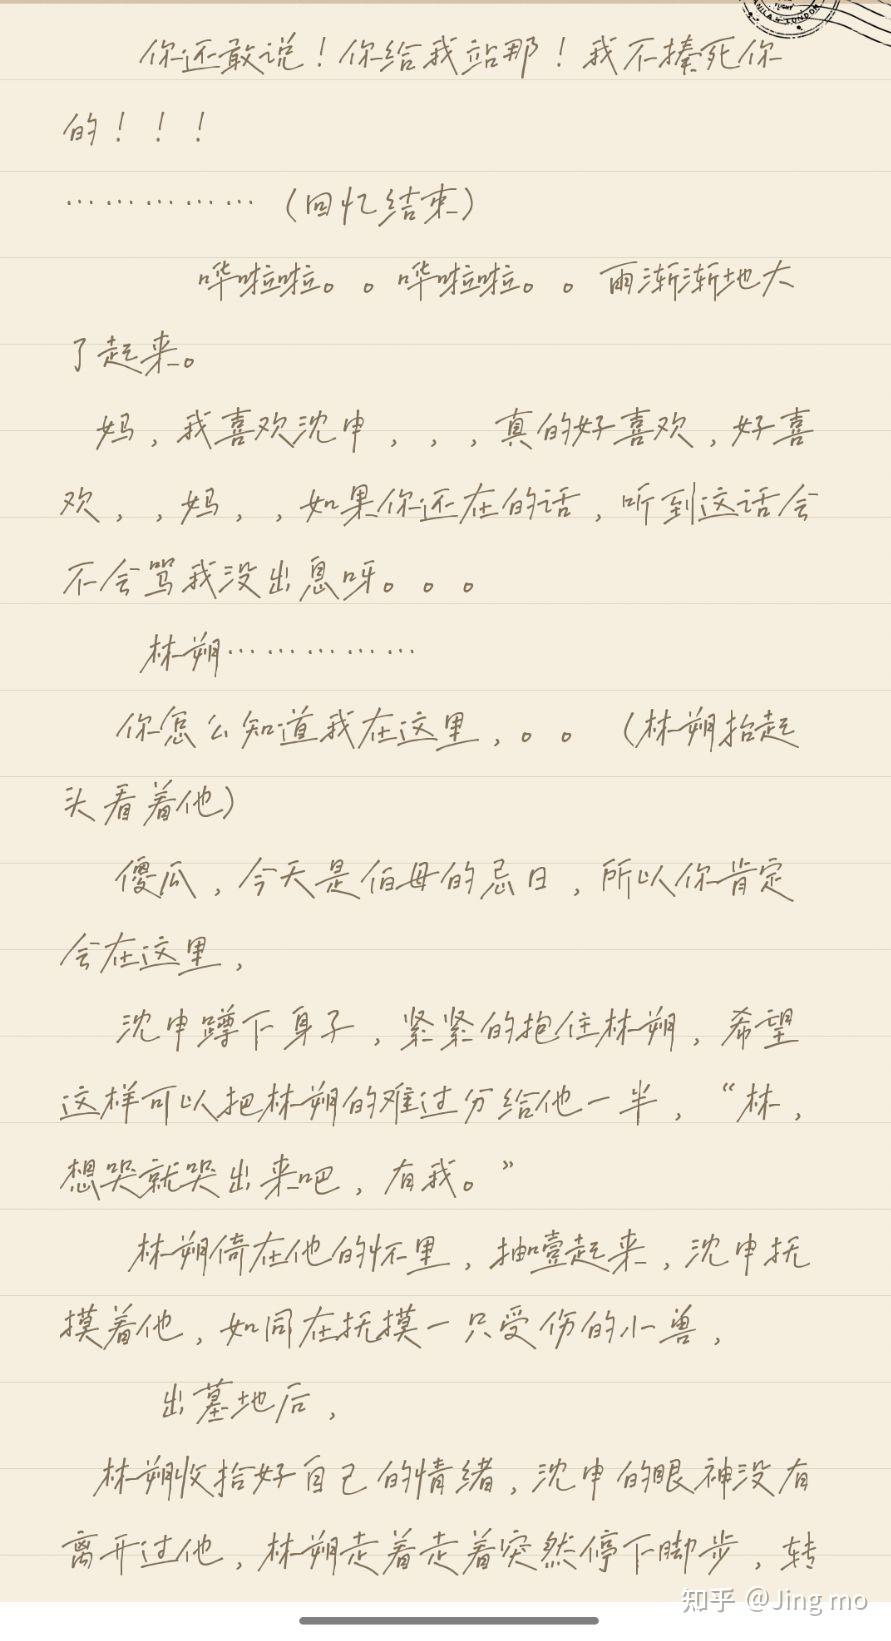 你还敢说！你给我站那！我不揍死你
的！！！
……………（回忆结束）
哗啦啦。。哗啦啦。。雨渐渐地大
了起来。
妈，我喜欢沈申，，，真的好喜欢，好喜
欢，，妈，，如果你还在的话，听到这话会
不会骂我没出息呀。。。
林朔……………
你怎么知道我在这里，。。（林朔抬起
头看着他）
傻瓜，今天是伯母的忌日，所以你肯定
会在这里，
沈申蹲下身子，紧紧的抱住林朔，希望
这样可以把林朔的难过分给他一半，“林，
想哭就哭出来吧，有我。”
林朔倚在他的怀里，抽噎起来，沈申抚
摸着他，如同在抚摸一只受伤的小兽，
出墓地后，
林朔收拾好自己的情绪，沈申的眼神没有
离开过他，林朔走着走着突然停下脚步，转
知乎 @Jing mo